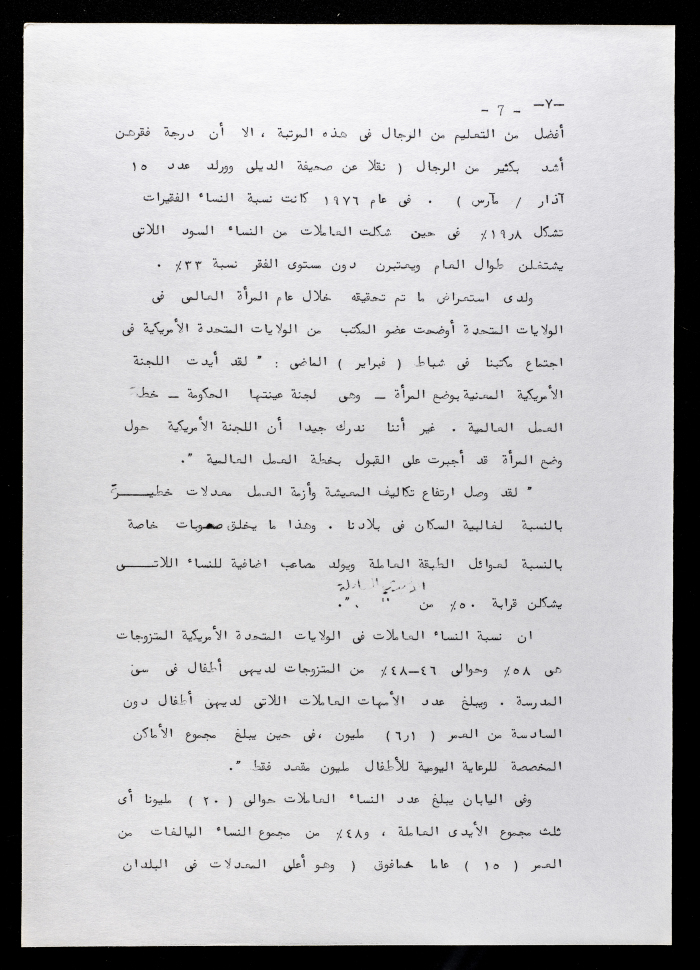 -٧-
- 7 -
أفضل من التعليم من الرجال فى هذه المرتبة ، الا أن درجة فقرهن
أشد بكثير من الرجال ( نقلا عن صحيفة الديلى وورلد عدد ١٥
آذار / مآرس ) . فى عام ١٩٧٦ كانت نسبة النساء الفقيرات
تشكل ١٩٫٨٪ فى حين شكلت العاملات من النساء السود اللاتى
يشتغلن طوال العام ويعتبرن دون مستوى الفقر نسبة ٣٣٪ .
ولدى استعراض ما تم تحقيقه خلال عام المرأة العالمى فى
الولايات المتحدة أوضحت عضو المكتب من الولايات المتحدة الأمريكية فى
اجتماع مكتبنا فى شباط ( فبراير ) الماضى : " لقد أيدت اللجنة
الأمريكية المعنية بوضع المرأة - وهى لجنة عينتها الحكومة - خطة
العمل العالمية . غير أننا ندرك جيدا أن اللجنة الأمريكية حول
وضع المرأة قد أجبرت على القبول بخطة العمل العالمية ".
" لقد وصل ارتفاع تكاليف المعيشة وأزمة العمل معدلات خطيــــرة
بالنسبة لغالبية السكان فى بلادنا . وهذا ما يخلق صعوبات خاصة
بالنسبة لعوائل الطبقة العاملة ويولد مصاعب اضافية للنساء اللاتــــى
يشكلن قرابة ٥٠٪ من الأيدي العاملة ".
ان نسبة النساء العاملات فى الولايات المتحدة الأمريكية المتزوجات
هى ٥٨٪ وحوالى ٤٦-٤٨٪ من المتزوجات لديهى أطفال فى سن
المدرسة . ويبلغ عدد الأمهات العاملات اللاتى لديهن أطفال دون
السادسة من العمر ( ٦٫١) مليون ،فى حين يبلغ مجموع الأماكن
المخصصة للرعاية اليومية للأطفال مليون مقعد فقط ".
وفى اليابان يبلغ عدد النساء العاملات حوالى ( ٢٠ ) مليونا أى
ثلث مجموع الأيدى العاملة ، و٤٨٪ من مجموع النساء اليالغات من
العمر ( ١٥ ) عاما خمافوق ( وهو أعلى المعدلات فى البلدان